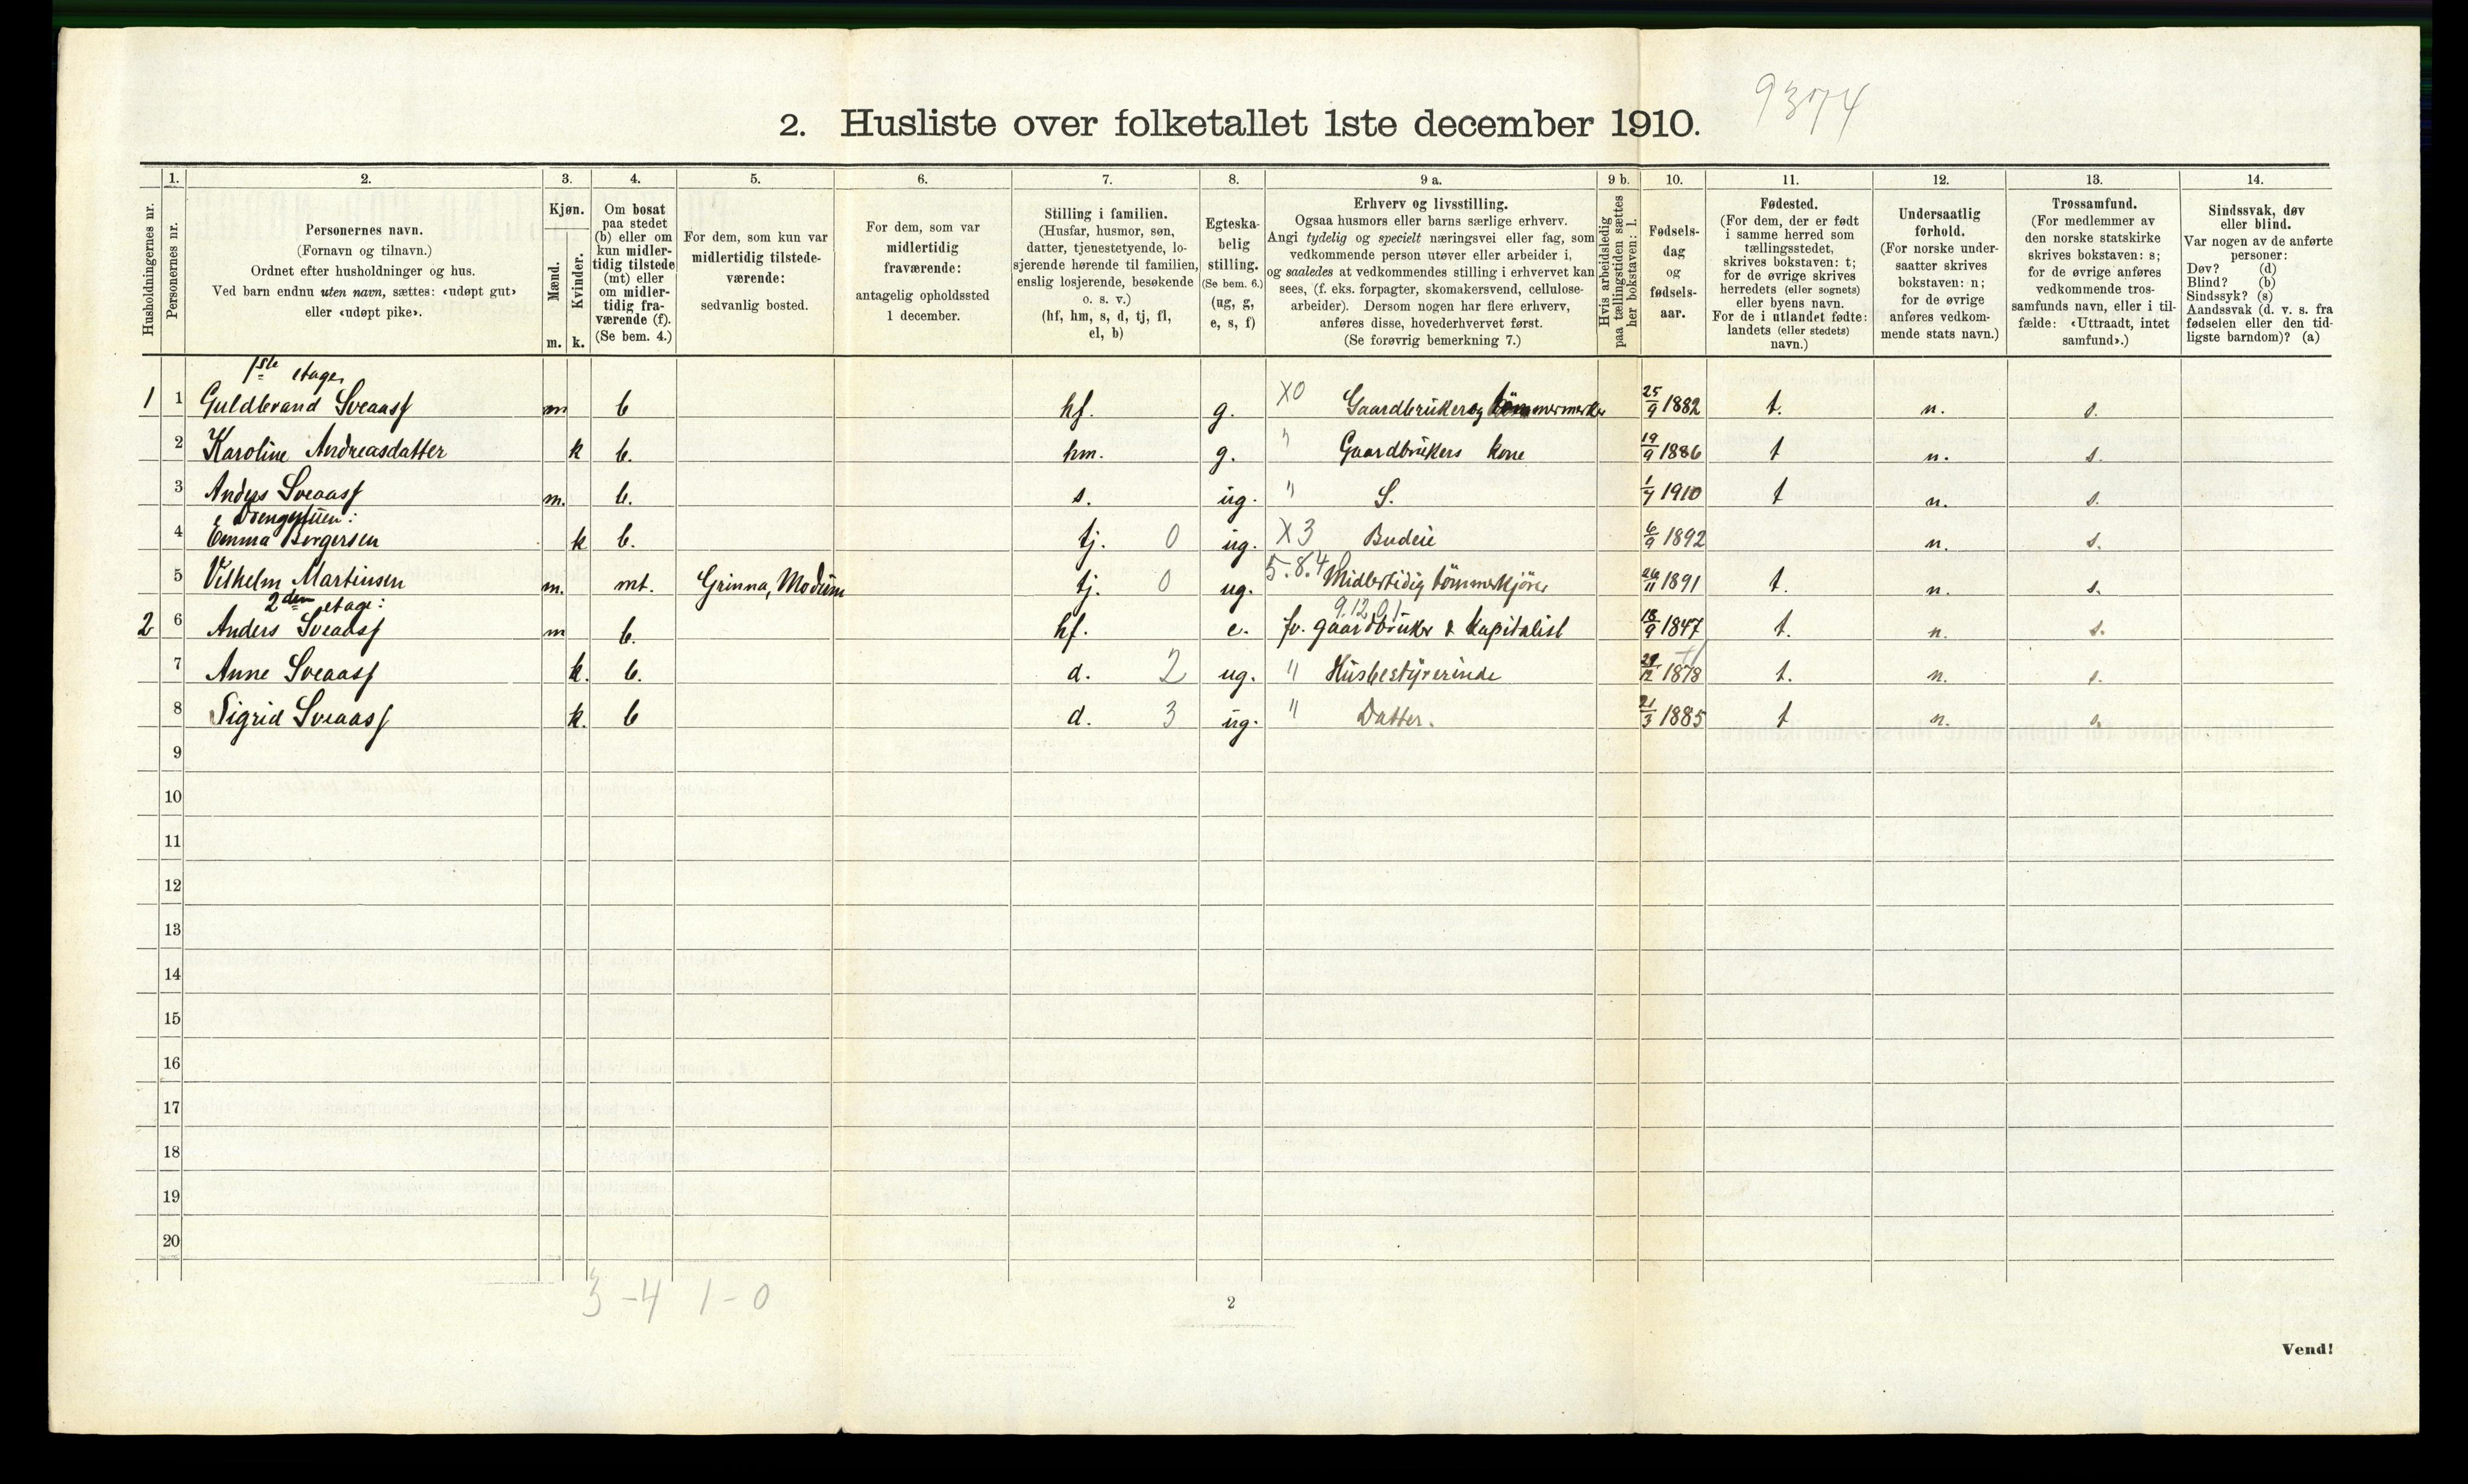 9374
2. Husliste over folketallet 1ste december 1910.
Husholdningernes nr.
1.
Personernes nr.
2.
Personernes navn.
(Fornavn og tilnavn.)
Ordnet efter husholdninger og hus.
Ved barn endnu uten navn, sættes: «udøpt gut»
eller «udøpt pike».
3.
Kjøn.
Mænd.
Kvinder.
m. k.
4.
Om bosat
paa stedet
(b) eller om
kun midler-
tidig tilstede
(mt) eller
om midler-
tidig fra-
værende (f).
(Se bem. 4.)
5.
For dem, som kun var
midlertidig tilstede-
værende:
sedvanlig bosted.
6.
For dem, som var
midlertidig
fraværende:
antagelig opholdssted
1 december.
7.
Stilling i familien.
(Husfar, husmor, søn,
datter, tjenestetyende, lo-
sjerende hørende til familien,
enslig losjerende, besøkende
o. s. v.)
(hf, hm, s, d, tj, fl,
el, b)
8.
Egteska-
belig
stilling.
(Se bem. 6.)
(ug, g,
e, s, f)
9 a.
Erhverv og livsstilling.
Ogsaa husmors eller barns særlige erhverv.
Angi tydelig og specielt næringsvei eller fag, som
vedkommende person utøver eller arbeider i,
og saaledes at vedkommendes stilling i erhvervet kan
sees, (f. eks. forpagter, skomakersvend, cellulose-
arbeider). Dersom nogen har flere erhverv,
anføres disse, hovederhvervet først.
(Se forøvrig bemerkning 7.)
9 b.
Hvis arbeidsledig
paa tællingstiden sættes
her bokstaven: l.
10.
Fødsels-
dag
og
fødsels-
aar.
11.
Fødested.
(For dem, der er født
i samme herred som
tællingsstedet,
skrives bokstaven: t;
for de øvrige skrives
herredets (eller sognets)
eller byens navn.
For de i utlandet fødte:
landets (eller stedets)
navn.)
12.
Undersaatlig
forhold.
(For norske under-
saatter skrives
bokstaven: n;
for de øvrige
anføres vedkom-
mende stats navn.)
13.
Trossamfund.
(For medlemmer av
den norske statskirke
skrives bokstaven: s;
for de øvrige anføres
vedkommende tros-
samfunds navn, eller i til-
fælde: «Uttraadt, intet
samfund».)
14.
Sindssvak, døv
eller blind.
Var nogen av de anførte
personer:
Døv? (d)
Blind? (b)
Sindssyk? (s)
Aandssvak (d. v. s. fra
fødselen eller den tid-
ligste barndom)? (a)
1ste etage,
1 1 Guldbrand Sveaas m b hf. g. X0 Gaardbruker og tömmermerker 25/9 1882 t. n. s.
2 Karoline Andreasdatter k b. hm. g. " Gaardbrukers kone 19/9 1886 t n. s.
3 Anders Sveaas m. b. s. ug. " S. 1/7 1910 t n. s.
i Drengestuen:
4 Emma Borgersen k b. tj. 0 ug. X3 Budeie 6/9 1892 n. s.
5 Vilhelm Martinsen m. mt. Grinna, Modum tj. 0 ug. 5.8.4 Midlertidig tömmerkjörer 26/11 1891 t. n. s.
2den etage: 9.12.0.1
2 6 Anders Sveaas m b. hf. e. fv. gaardbruker & kapitalist 18/9 1847 t. n. s.
7 Anne Sveaas k. b. d. 2 ug. " Husbestyrerinde 29/12 1878 t. n. s.
8 Sigrid Sveaas k. b d. 3 ug. " Datter. 21/3 1885 t n. s.
9
10
11
12
13
14
15
16
17
18
19
20
3-4 1-0
2
Vend!